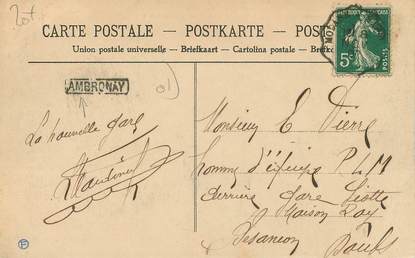 CARTE POSTALE — POSTKARTE — POST
Union postale universelle — Briefkaart — Cartolina postale — Briefko
5c
POSTES
AMBRONAY
La nouvelle gare
Monsieur E Pierre
homme d'équipe P L M
derrière gare Viotte
Maison Roy
Besancon
Doubs
F